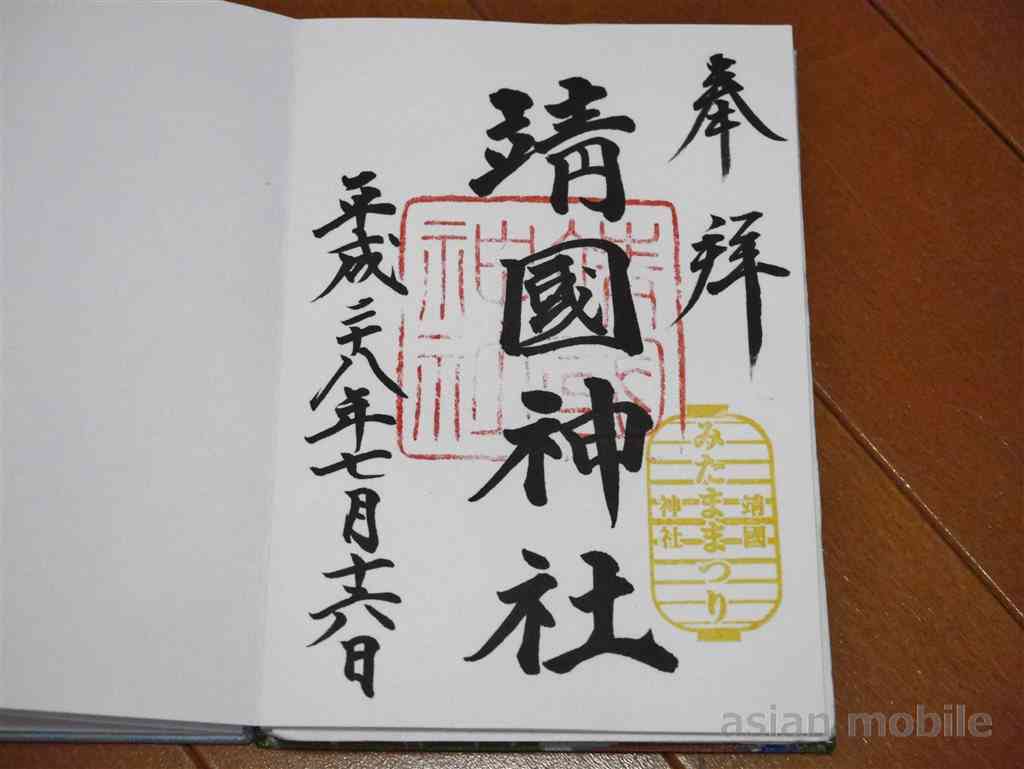 奉拝
靖國神社
平成二十八年七月十六日
靖國神社
みたままつり
靖國
神社
asian mobile